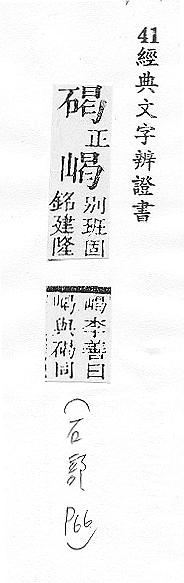 41 經典文字辨證書
碣正嵑別班固
銘建隆
嵑李善曰
嵑與碣同
(石部 P66)